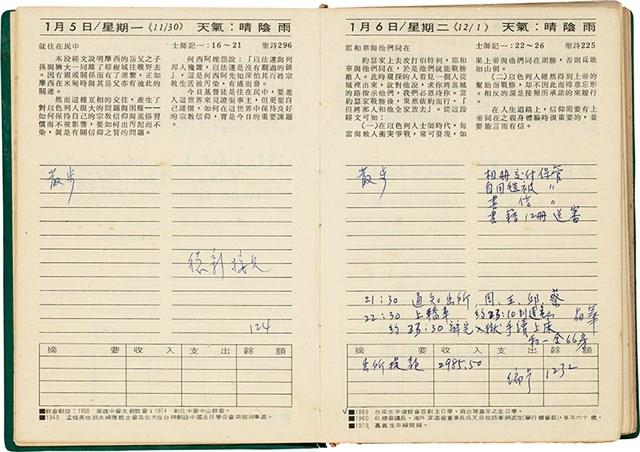 1月5日/星期一〈11/30〉 天氣：晴陰雨
就住在民中 士師記一：16～21 聖詩296
本段經文說明摩西的岳父之子
孫與猶大一同離了棕樹城往曠野去
因有親戚關係而有了連繫，正如
摩西在米甸時與其岳父亦有彼此的
關連。
然而這種互相的交往，產生了
對以色列百姓的宗教信仰的困難—
如何保持自己的宗教信仰與風俗習
慣而不被影響，要如何出污泥而不
染，就是有關信仰之質的問題。
何西阿埋怨說：「以法蓮與列
邦人攙雜，以法蓮是沒有翻過的餅
信仰上的失敗。
今日基督徒是住在民中，要進
入這世界見證服事主，但更要自
己謹慎，如何在這世界中保持良好
的信仰，實是今日的重要課題
散步
接見
124
摘要 收入 支出 餘額
1月6日/星期二〈12/1〉 天氣：晴陰雨
耶和華與他們同在 士師記一：22～26 聖詩225
約瑟家上去攻打伯特利，耶和
華與他們同在，於是使他們能戰勝
敵人。此時窺探的人看見一個人從
城裡出來，就對他說，求你將進城
的路指示我們，我們必恩待你。當
約瑟家戰勝後，果然依約而行，「
但將那人和他全家放去」。從這段
經文可知：
(一)在以色列人士師時代，每
當與敵人衝突爭戰，常可發現，如
果上帝與他們同在則勝，否則兵敗
如山倒。
(二)以色列人雖然得到上帝的
幫助而戰勝，却不因此而得意忘形
，相反的說是按照所承諾的來履行
。
在人生道路上，信仰需要有上
帝同在之親身體驗時很重要的，並
要能言而有信。
散步
相冊交付保管
自用棉被 〃
書信 〃
書籍12冊送審
21:30 通知出所，周、王、邱、蔡
22:30 上轎車
約23:30辦完入獄手續上床
摘要 收入 支出 餘額
出所提款 2985.50 編号 1232